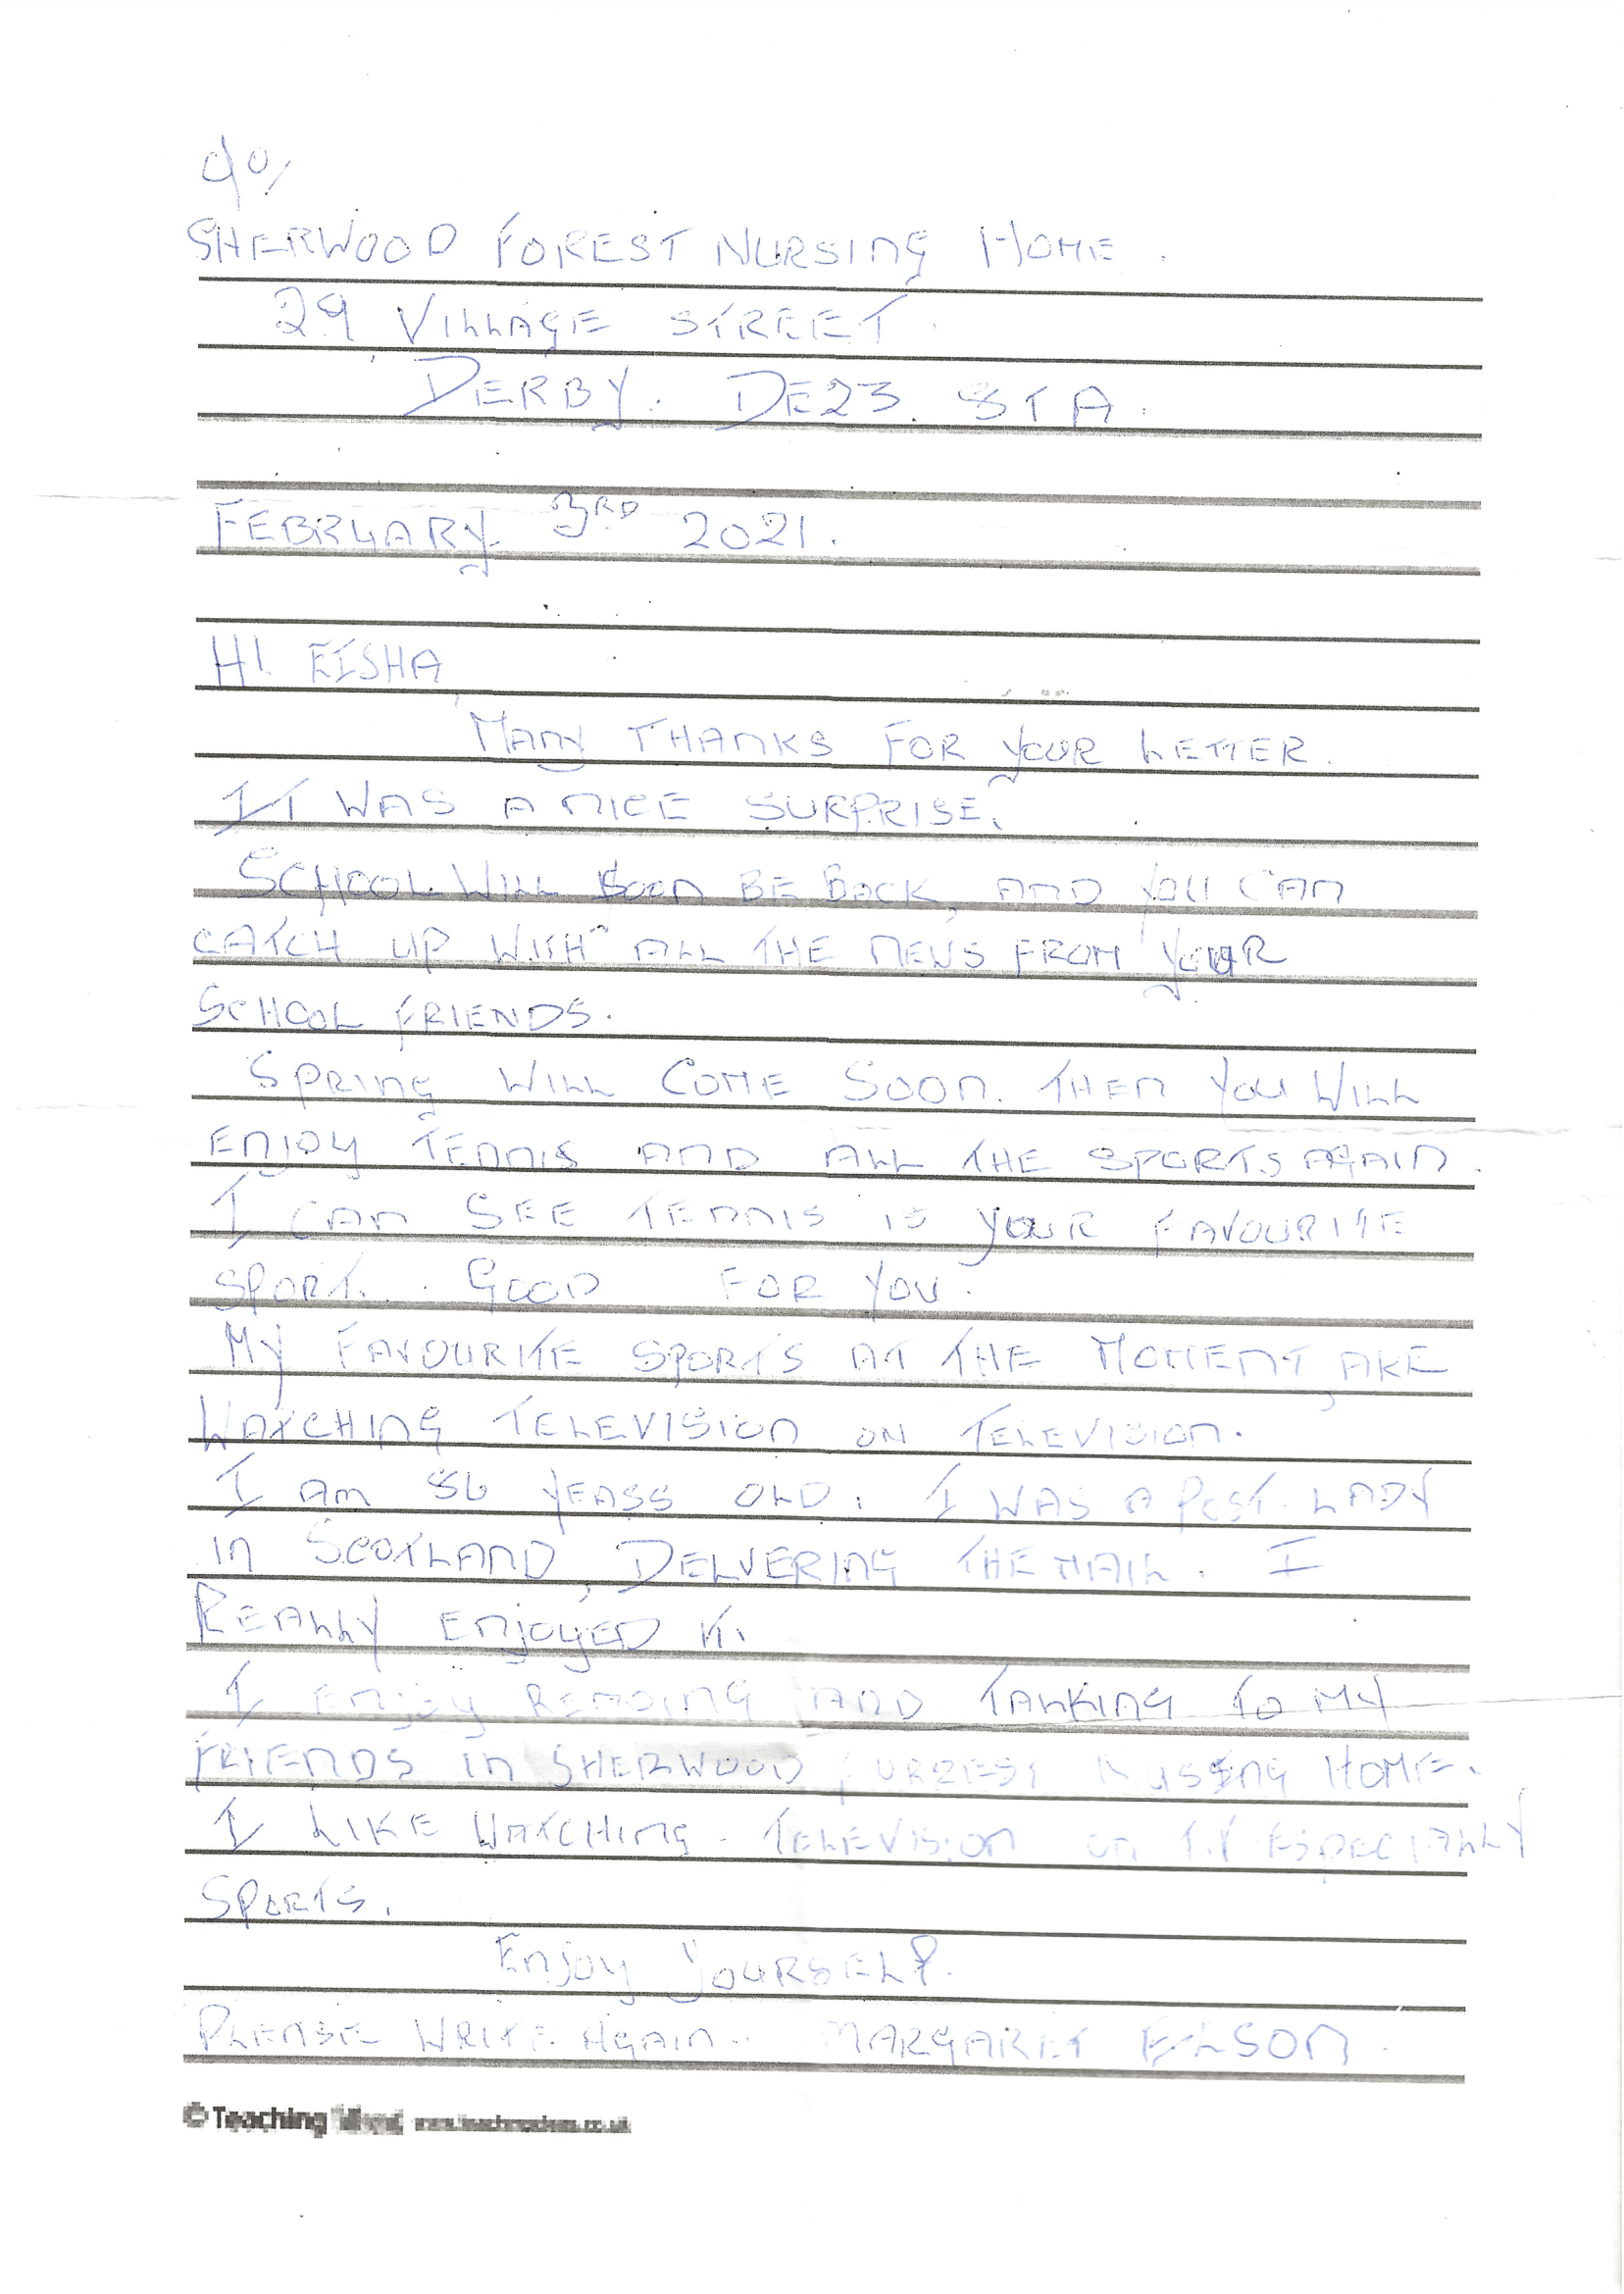 c/o
SHERWOOD FOREST NURSING HOME.
29 VILLAGE STREET.
DERBY. DE23 8TA.
FEBRUARY 3RD 2021.
HI EISHA
MANY THANKS FOR YOUR LETTER.
IT WAS A NICE SURPRISE.
SCHOOL WILL SOON BE BACK, AND YOU CAN
CATCH UP WITH ALL THE NEWS FROM YOUR
SCHOOL FRIENDS.
SPRING WILL COME SOON. THEN YOU WILL
ENJOY TENNIS AND ALL THE SPORTS AGAIN.
I CAN SEE TENNIS IS YOUR FAVOURITE
SPORT. GOOD FOR YOU.
MY FAVOURITE SPORTS AT THE MOMENT, ARE
WATCHING TELEVISION ON TELEVISION.
I AM 86 YEASS OLD. I WAS A POST LADY
IN SCOTLAND, DELVERING THE MAIL. I
REALLY ENJOYED IT.
I ENJOY READING AND TALKING TO MY
FRIENDS IN SHERWOOD HOME.
I LIKE WATCHING TELEVISION ON T.V ESPECIALLY
SPORTS.
ENJOY YOURSELF.
PLEASE WRITE AGAIN.. MARGARET
© Teaching